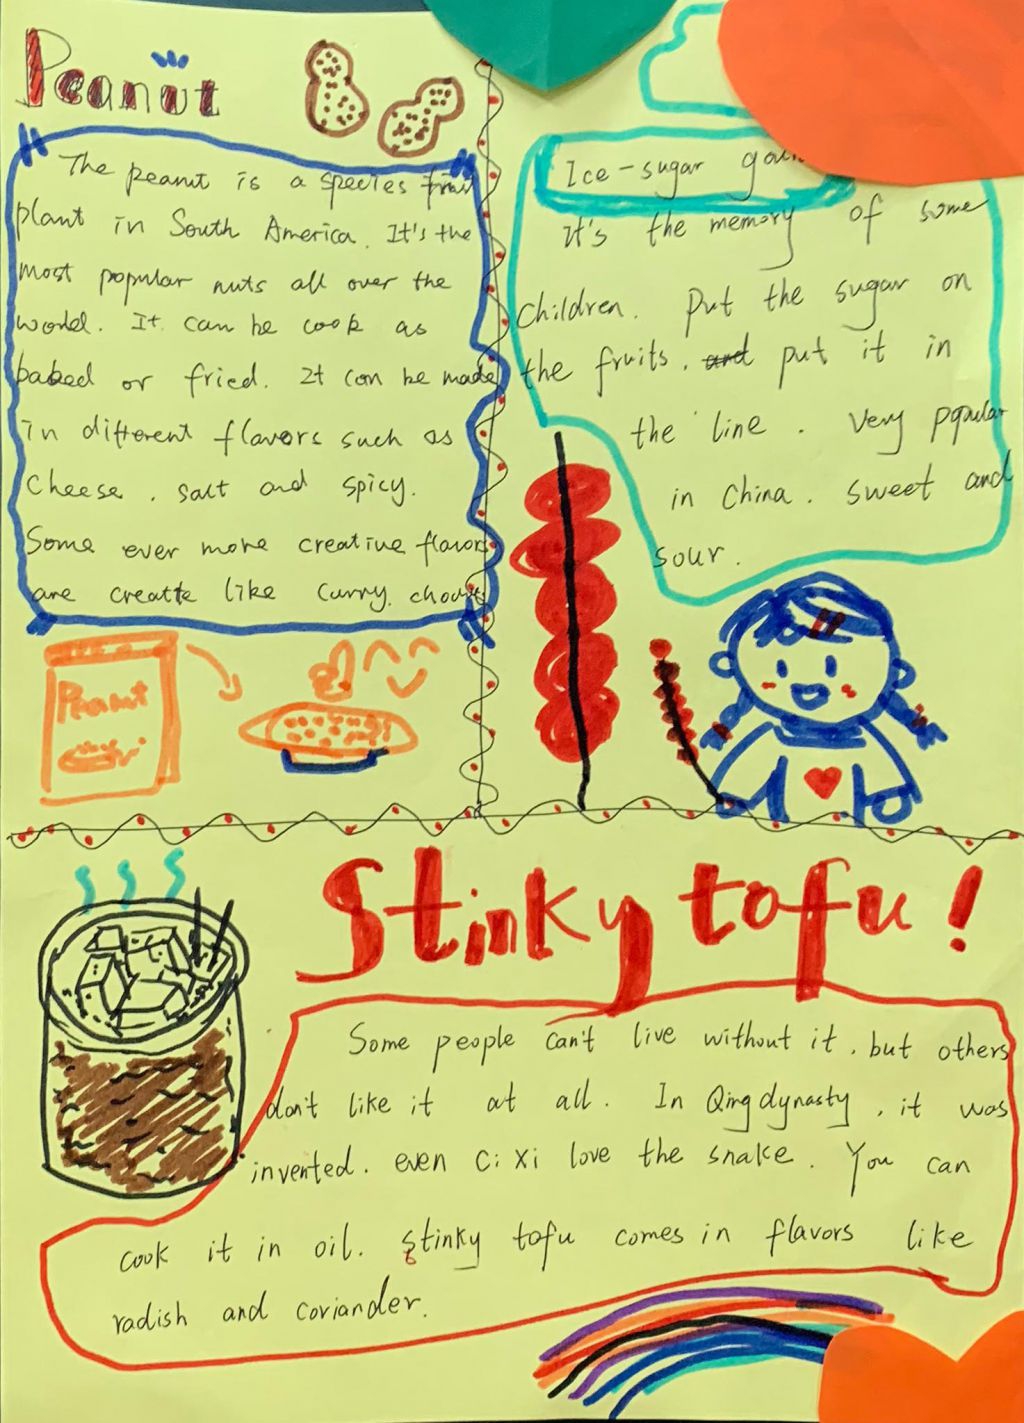 Peanut
The peanut is a species
plant in South America. It's the
most popular nuts all over the
world. It can be cook as
baked or fried. It can be made
in different flavors such as
cheese, salt and spicy.
Some ever more creative flavors
are creatte like curry,
Peanut
Ice-sugar
it's the memory of some
children. Put the sugar on
the fruits, and put it in
the line. Very popular
in China. sweet and
sour.
Stinky tofu!
Some people can't live without it, but others
don't like it at all. In Qing dynasty, it was
invented. even Ci Xi love the snake. You can
cook it in oil. stinky tofu comes in flavors like
radish and coriander.